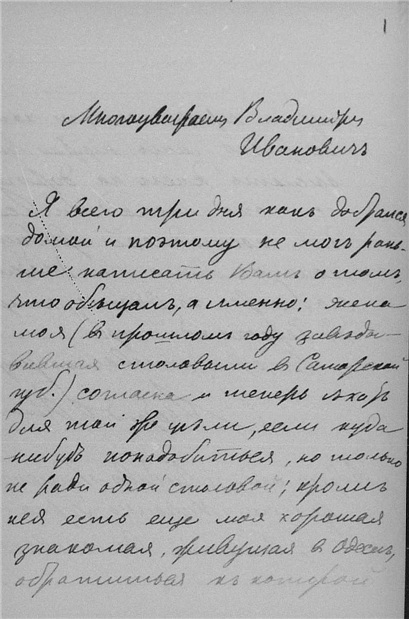 1
Многоуважаемый Владимиръ
Ивановичъ
Я всего три дня какъ добрался
домой и поэтому не могъ рань-
ше написать Вамъ о томъ,
что обѣщалъ, а именно: жена
моя (въ прошломъ году завѣды-
вавшая столовыми в Самарской
губ.) согласна и теперь ѣхать
для той же цѣли, если куда
нибудь понадобиться, но только
не ради одной столовой; кромѣ
нея есть еще моя хорошая
знакомая, живущая в Одессѣ,
обратиться къ которой